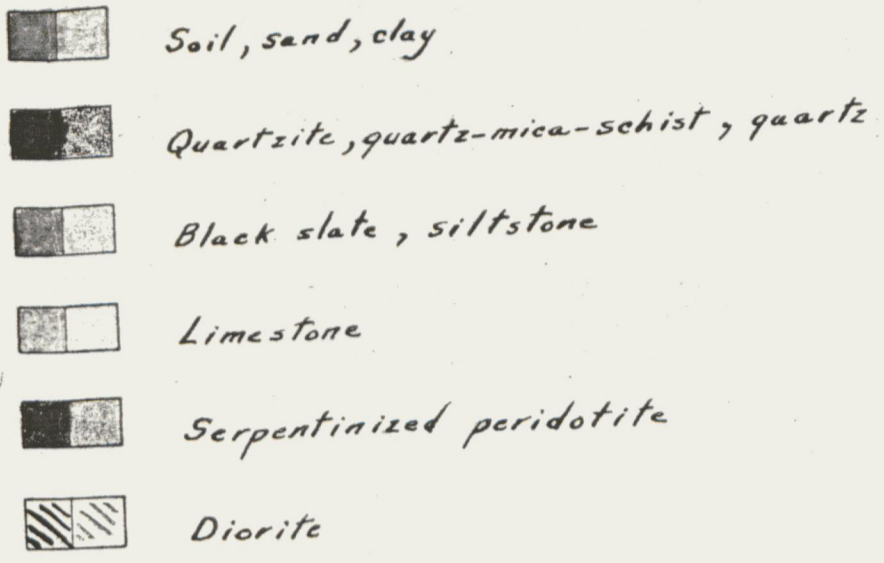 Soil, sand, clay
Quartzite, quartz-mica-schist, quartz
Black slate, siltstone
Limestone
Serpentinized peridotite
Diorite